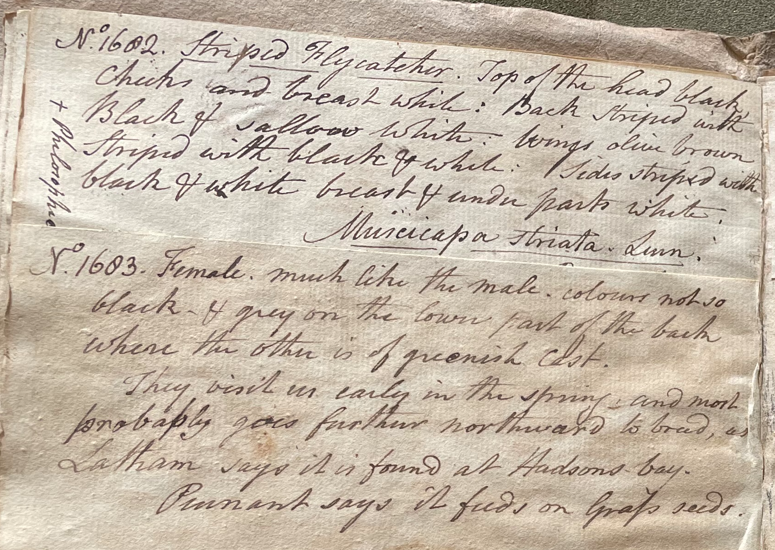 No. 1682. Striped Flycatcher. Top of the head black,
Cheeks and breast white: Back striped with
Black & sallow white: wings olive brown
Striped with black & white: Sides striped with
black & white breast & under parts white.
Muscicapa striata. Linn.
No. 1683. Female. much like the male. colours not so
black - & grey on the lower part of the back
where the other is of greenish cast.
They visit us early in the spring, and most
probably goes further northward to breed, as
Latham says it is found at Hudsons bay.
Pennant says it feeds on Grass seeds.